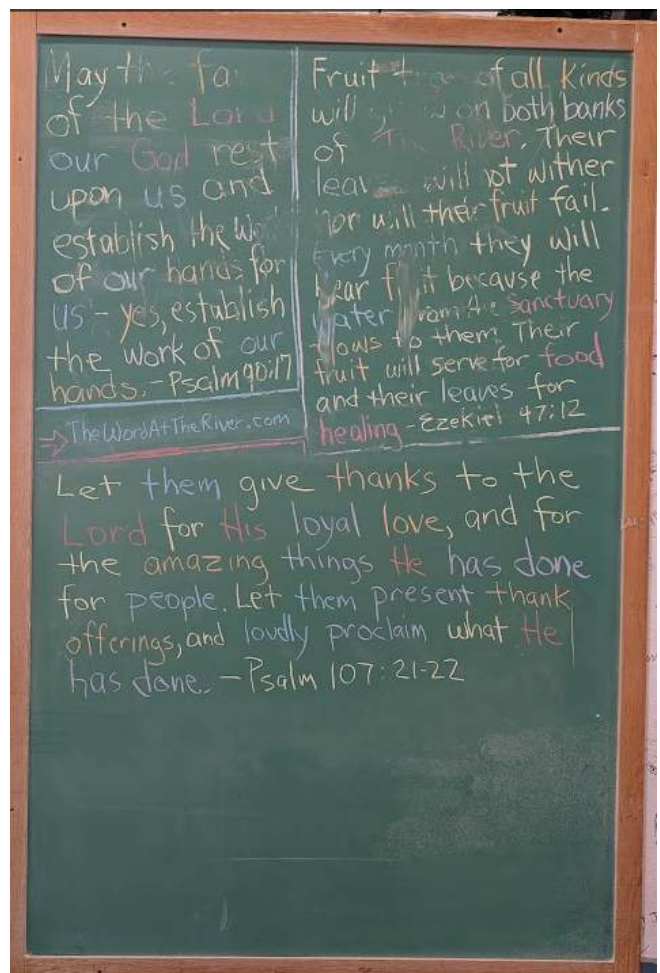 May the
of the Lord
our God rest
upon us and
establish the
of our hands for
us - yes, establish
the work of our
hands. - Psalm 90:17
→ TheWordAtTheRiver.com
Fruit of all kinds
will on both banks
of The River. Their
will not wither
nor will their fruit fail.
Every month they will
bear because the
water from the sanctuary
flows to them. Their
fruit will serve for food
and their leaves for
healing - Ezekiel 47:12
Let them give thanks to the
Lord for His loyal love, and for
the amazing things He has done
for people. Let them present thank
offerings, and loudly proclaim what He
has done. - Psalm 107:21-22